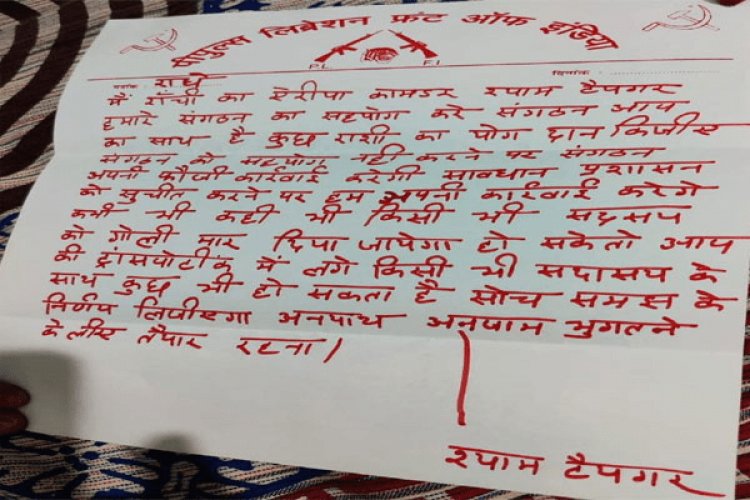 पीपुल्स लिबेशन फ्रंट ऑफ इंडिया
P.L. F.I
दिनांक
राधे
मैं राँची का ऐरीया कामडर श्याम टैपगर
हमारे संगठन का सहयोग करे संगठन आप
का साथ है कुछ राशी का योग दान किजीए
संगठन को सहयोग नही करने पर संगठन
अपनी फौजी कार्रवाई करेगी सावधान प्रशासन
को सुचीत करने पर हम अपनी कार्रवाई करेगे
कभी भी कही भी किसी भी सदसय
को गोली मार दिया जायेगा हो सकेतो आप
की ट्रांसपोटींक में लगे किसी भी सदासय के
साथ कुछ भी हो सकता है सोच समझ के
निर्णय लिजीएगा अनयाथ अनयाम भुगतने
के लीए तैयार रहना/
श्याम टैपगर